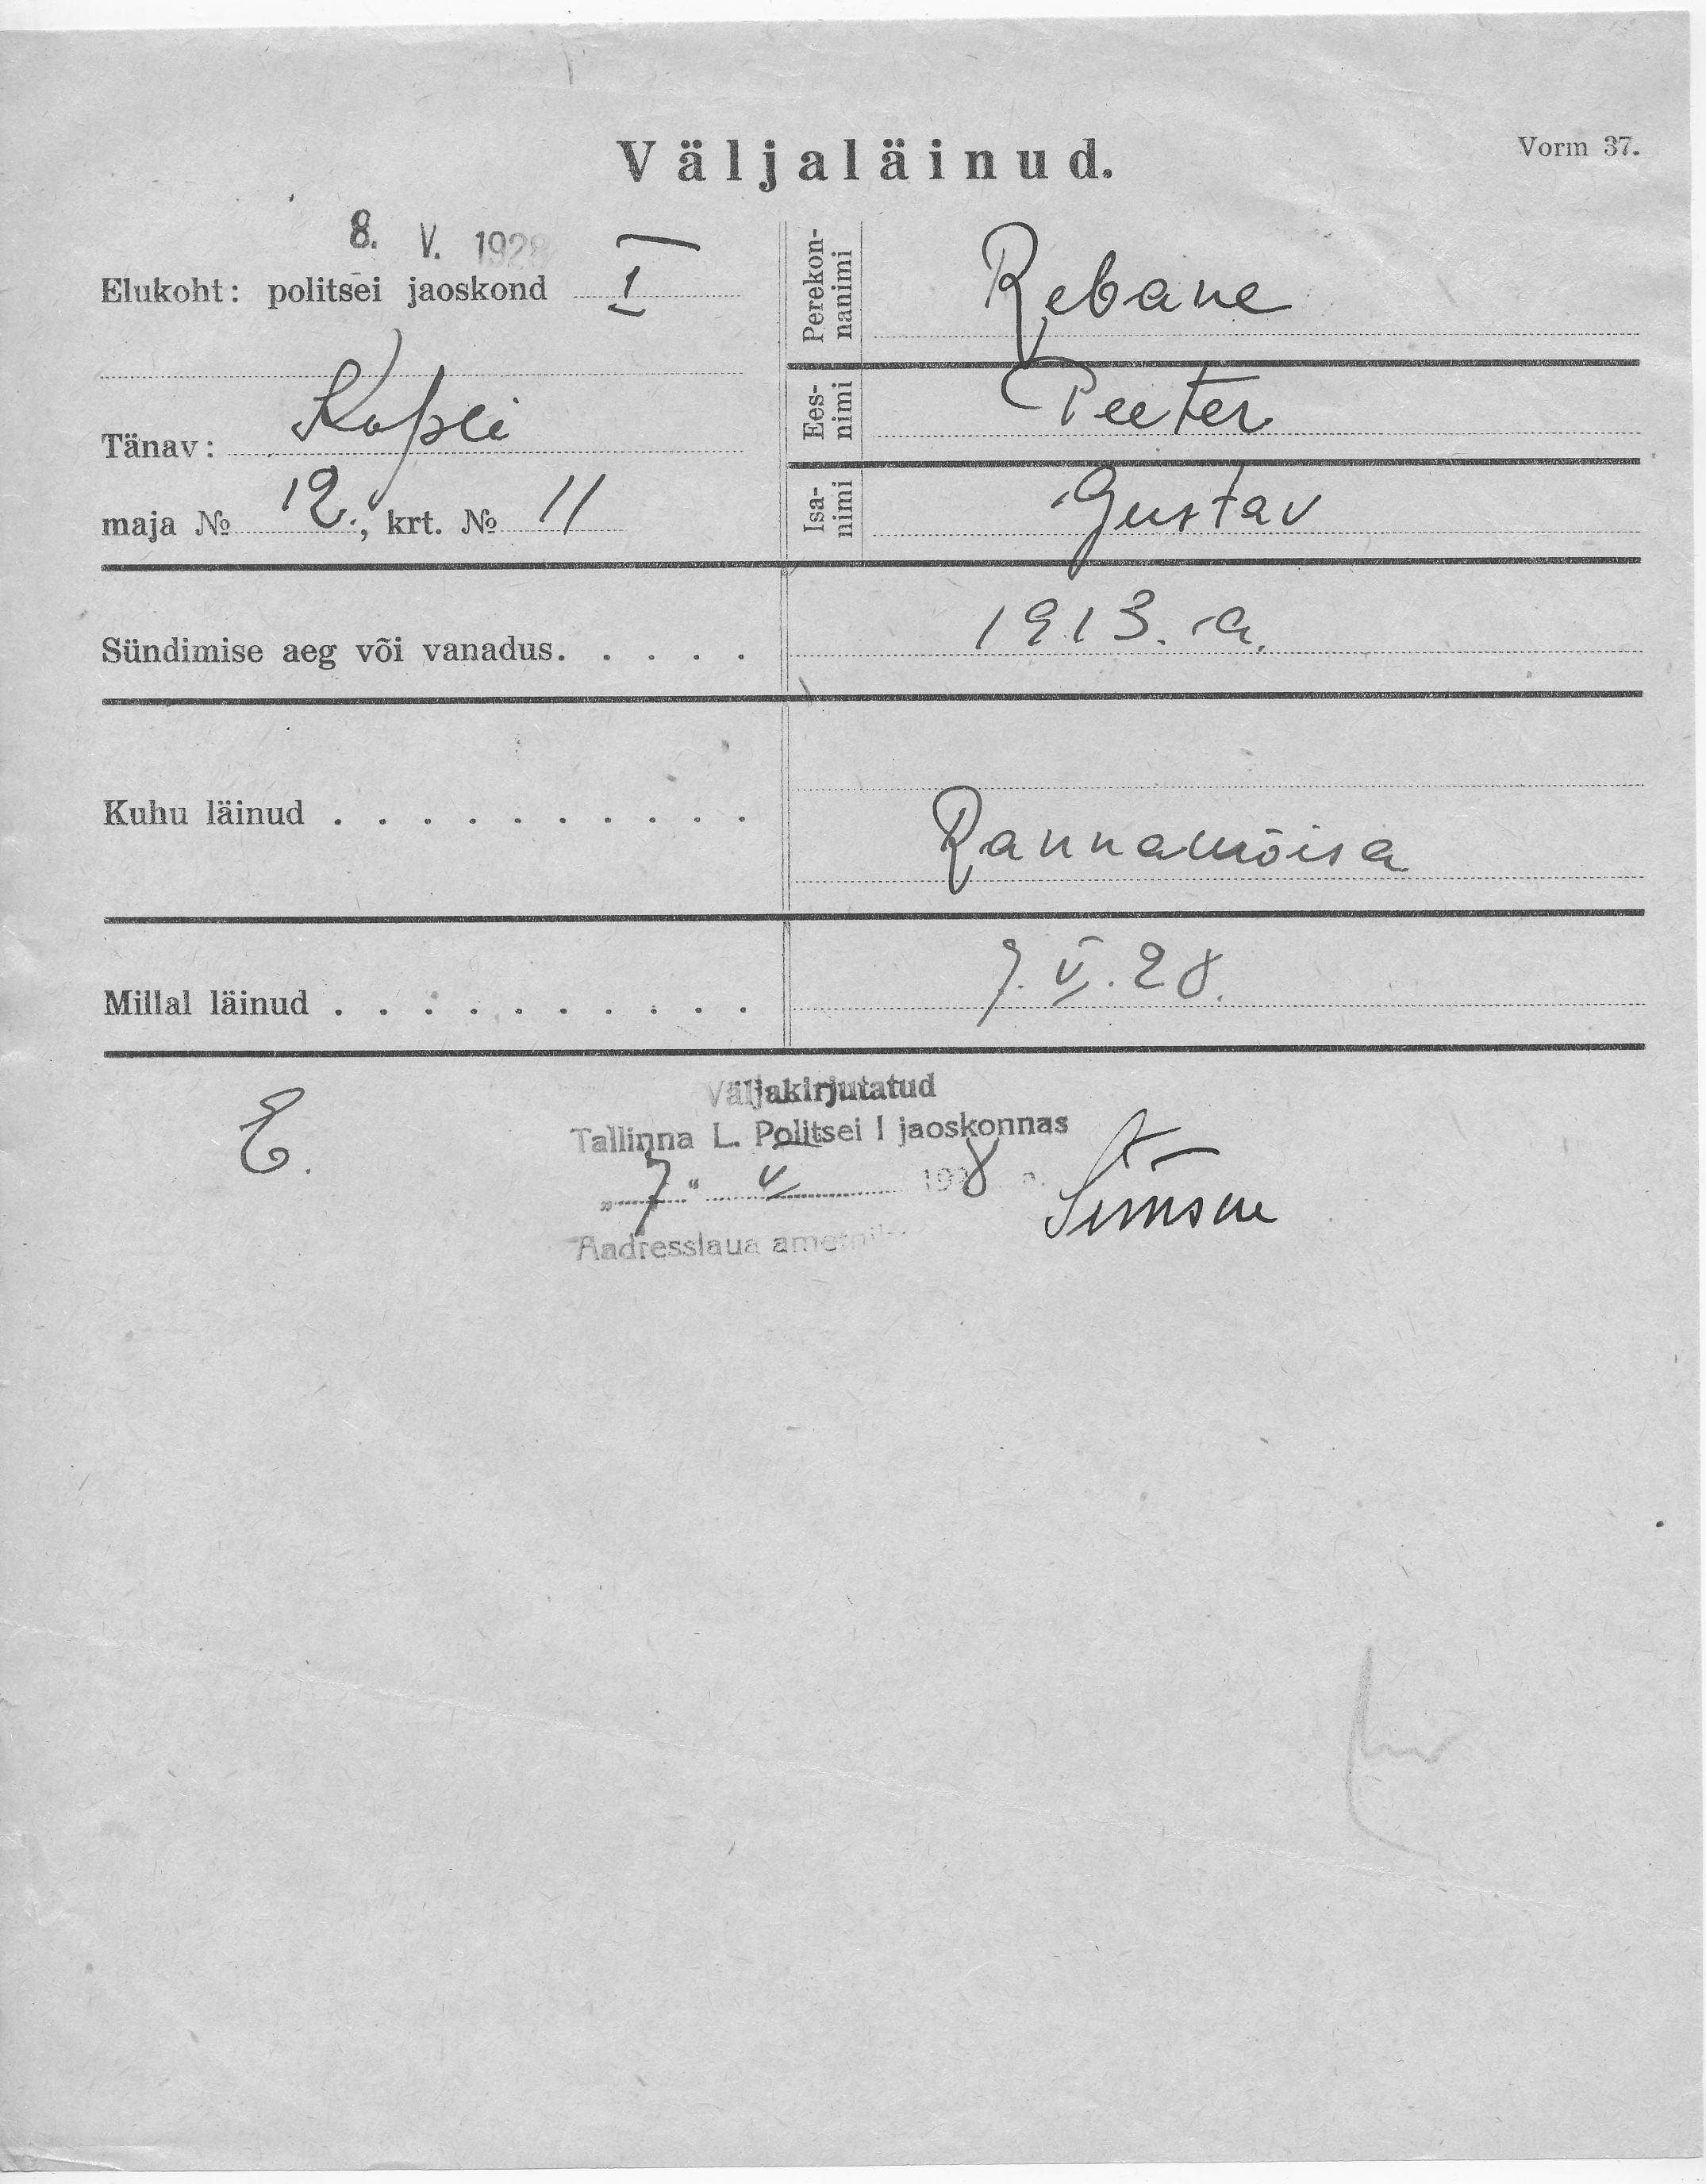 Väljaläinud.
Vorm 37.
8. V. 1928
Elukoht: politsei jaoskond I
Tänav: Kopli
maja № 12., krt. № 11
Perekon-
nanimi
Rebane
Ees-
nimi
Peeter
Isa-
nimi
Gustav
Sündimise aeg või vanadus. . . . . 1913. a.
Kuhu läinud . . . . . . . . . . Rannamõisa
Millal läinud . . . . . . . . . . 7. V. 28.
E.
Väljakirjutatud
Tallinna L. Politsei I jaoskonnas
„7“ V 1928 a.
Aadresslaua